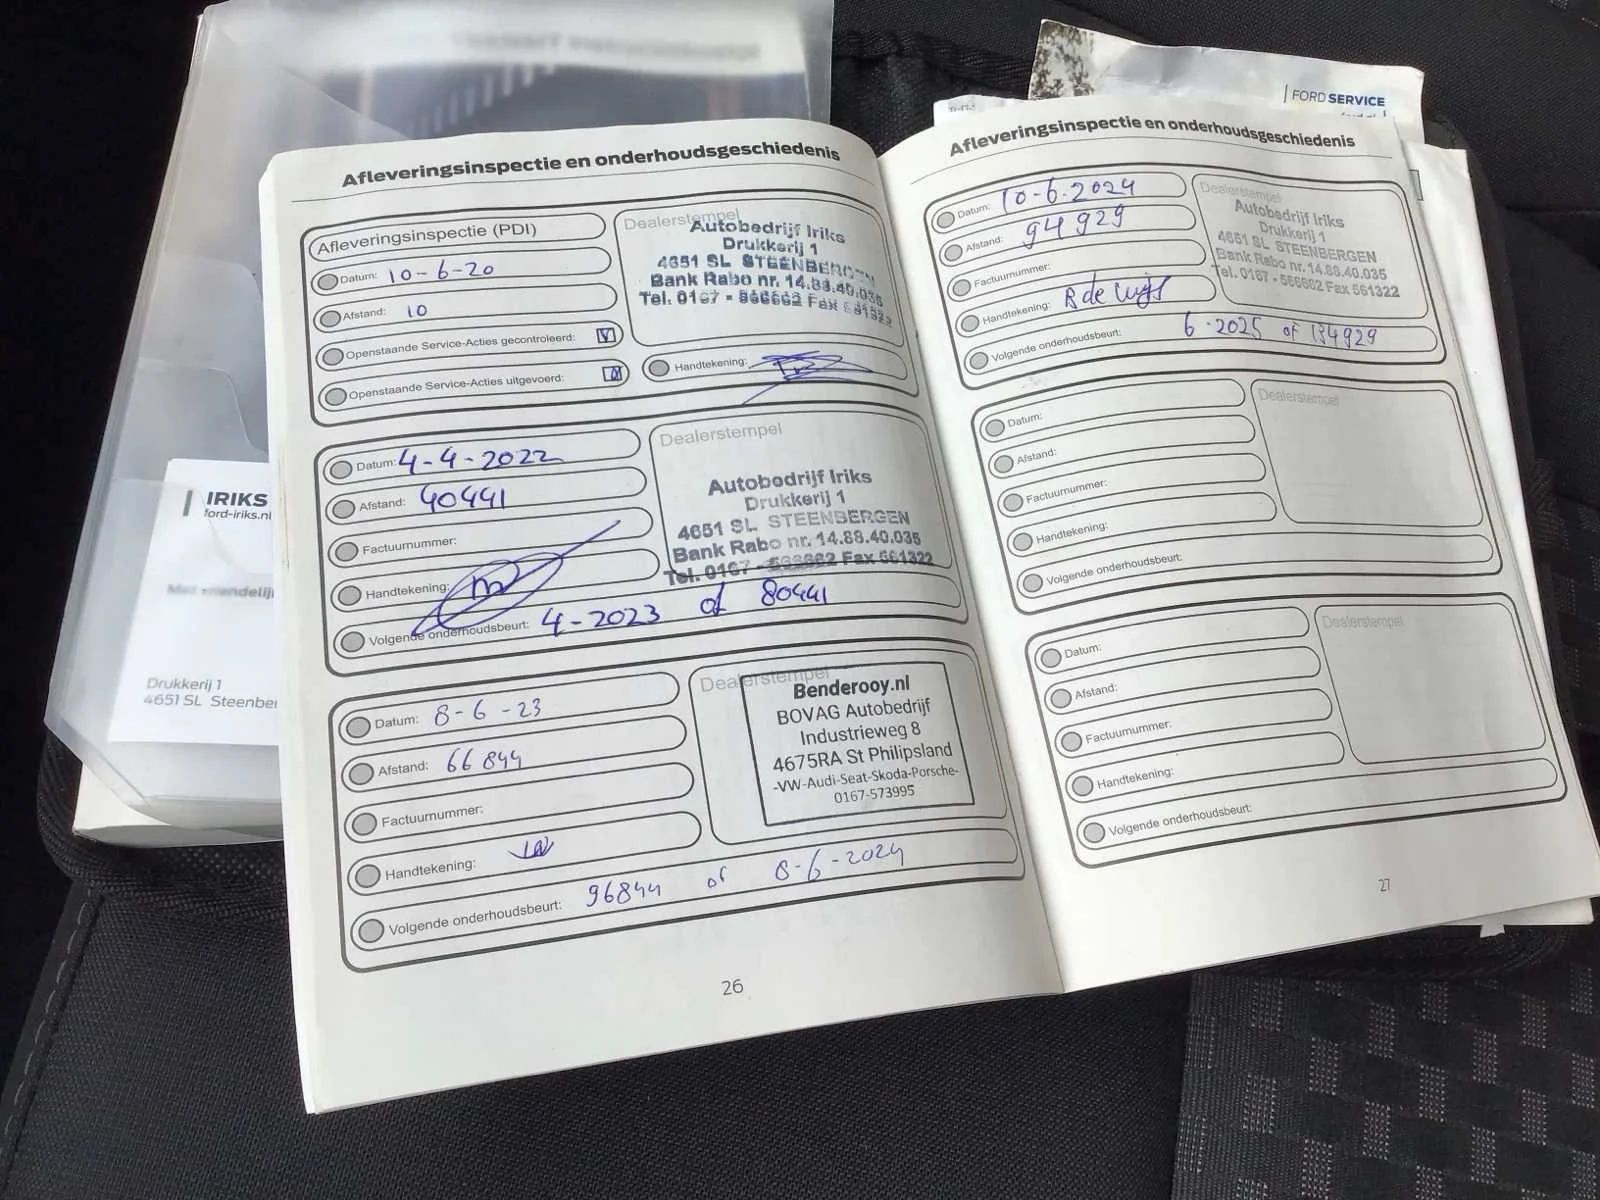 FORD SERVICE
IRIKS
ford-iriks.nl
Drukkerij 1
4651 SL Steenber
Afleveringsinspectie en onderhoudsgeschiedenis
Afleveringsinspectie (PDI)
Datum: 10-6-20
Afstand: 10
Openstaande Service-Acties gecontroleerd:
Openstaande Service-Acties uitgevoerd:
Dealerstempel
Autobedrijf Iriks
Drukkerij 1
4651 SL STEENBERGEN
Bank Rabo nr. 14.88.40.035
Tel. 0167 - 566662 Fax 561322
Handtekening:
Datum: 4-4-2022
Afstand: 40441
Factuurnummer:
Handtekening:
Volgende onderhoudsbeurt: 4-2023 of 80441
Dealerstempel
Autobedrijf Iriks
Drukkerij 1
4651 SL STEENBERGEN
Bank Rabo nr. 14.88.40.035
Tel. 0167 - 566662 Fax 561322
Datum: 8-6-23
Afstand: 66844
Factuurnummer:
Handtekening:
Volgende onderhoudsbeurt: 96844 of 8-6-2024
Dealerstempel
Benderooy.nl
BOVAG Autobedrijf
Industrieweg 8
4675RA St Philipsland
-VW-Audi-Seat-Skoda-Porsche-
0167-573995
26
Afleveringsinspectie en onderhoudsgeschiedenis
Datum: 10-6-2024
Afstand: 94929
Factuurnummer:
Handtekening:
Volgende onderhoudsbeurt: 6-2025 of 134929
Dealerstempel
Autobedrijf Iriks
Drukkerij 1
4651 SL STEENBERGEN
Bank Rabo nr. 14.88.40.035
Tel. 0167 - 566662 Fax 561322
Datum:
Afstand:
Factuurnummer:
Handtekening:
Volgende onderhoudsbeurt:
Dealerstempel
Datum:
Afstand:
Factuurnummer:
Handtekening:
Volgende onderhoudsbeurt:
Dealerstempel
27